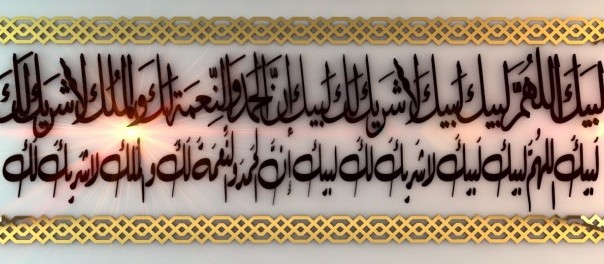 لبيك اللهم لبيك لبيك لا شريك لك لبيك إن الحمد والنعمة لك والملك لا شريك لك
لبيك اللهم لبيك لبيك لا شريك لك لبيك إن الحمد والنعمة لك والملك لا شريك لك